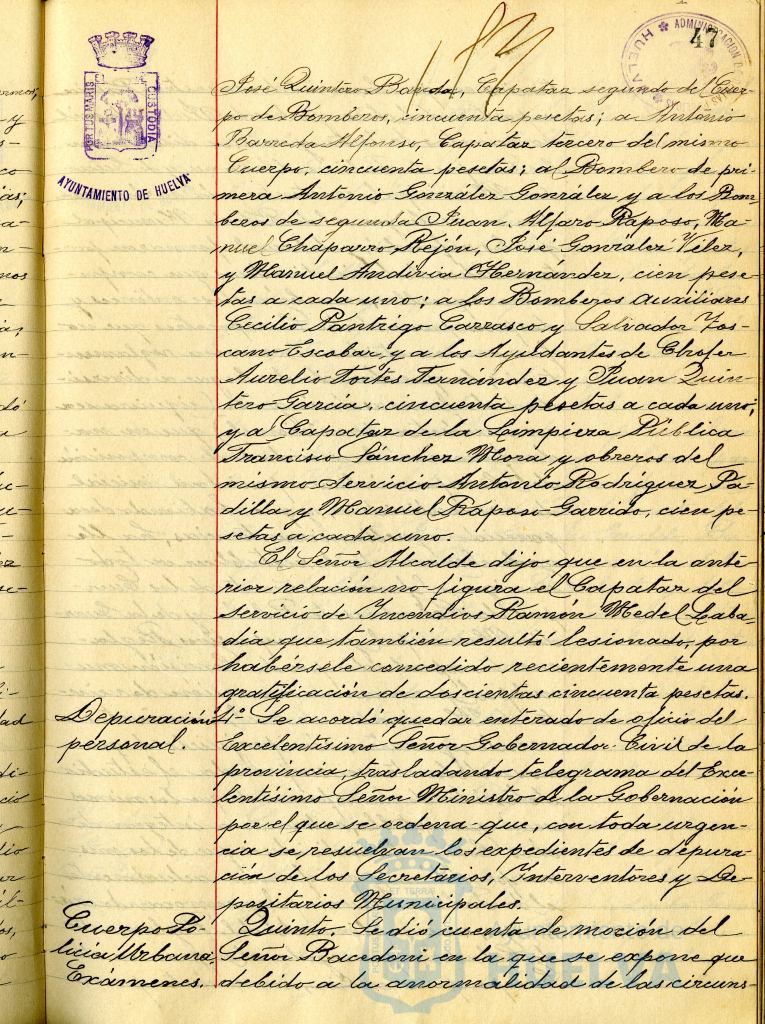 47
ADMINISTRACION
HUELVA
PORTUS MARIS
CUSTODIA
AYUNTAMIENTO DE HUELVA
José Quintero Banda, Capataz segundo del Cuer-
po de Bomberos, cincuenta pesetas; a Antonio
Barreda Alfonso, Capataz tercero del mismo
Cuerpo, cincuenta pesetas; al Bombero de pri-
mera Antonio González González y a los Bom-
beros de segunda Juan Alfaro Raposo, Ma-
nuel Chaparro Rejón, José González Vélez,
y Manuel Andivia Hernández, cien pese-
tas a cada uno; a los Bomberos auxiliares
Cecilio Pantrigo Carrasco y Salvador Tos-
cano Escobar, y a los Ayudantes de Chofer
Aurelio Tortes Fernández y Juan Quin-
tero García, cincuenta pesetas a cada uno;
y al Capataz de la Limpieza Pública
Francisco Sánchez Mora y obreros del
mismo Servicio Antonio Rodríguez Pa-
dilla y Manuel Raposo Garrido, cien pe-
setas a cada uno.
El Señor Alcalde dijo que en la ante-
rior relación no figura el Capataz del
Servicio de Incendios Ramón Medel Laba-
día que también resultó lesionado, por
habérsele concedido recientemente una
gratificación de doscientas cincuenta pesetas.
Depuración
personal.
4º Se acordó quedar enterado de oficio del
Excelentísimo Señor Gobernador Civil de la
provincia, trasladando telegrama del Exce-
lentísimo Señor Ministro de la Gobernación
por el que se ordena que, con toda urgen-
cia se resuelvan los expedientes de depura-
ción de los Secretarios, Interventores y De-
positarios Municipales.
Cuerpo Po-
licia Urbana
Exámenes.
Quinto. Se dió cuenta de moción del
Señor Bacedoni en la que se expone que
debido a la anormalidad de las circuns-
HUELVA